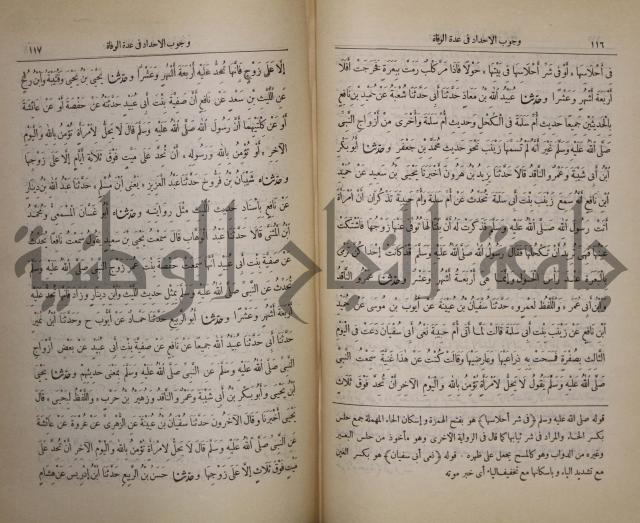 ١١٦ وجوب الاحداد فى عدة الوفاة
فِى أَحْلَاسِهَا أَوْ فِى شَرِّ أَحْلَاسِهَا فِى بَيْتِهَا حَوْلًا فَإِذَا مَرَّ كَلْبٌ رَمَتْ بِبَعَرَةٍ فَخَرَجَتْ أَفَلَا
أَرْبَعَةَ أَشْهُرٍ وَعَشْرًا وحدثنا عُبَيْدُ اللهِ بْنُ مُعَاذٍ حَدَّثَنَا أَبِى حَدَّثَنَا شُعْبَةُ عَنْ حُمَيْدِ بْنِ نَافِعٍ
بِالْحَدِيثَيْنِ جَمِيعًا حَدِيثِ أُمِّ سَلَمَةَ فِى الْكُحْلِ وَحَدِيثِ أُمِّ سَلَمَةَ وَأُخْرَى مِنْ أَزْوَاجِ النَّبِىِّ
صَلَّى اللهُ عَلَيْهِ وَسَلَّمَ غَيْرَ أَنَّهُ لَمْ تُسَمِّهَا زَيْنَبُ نَحْوَ حَدِيثِ مُحَمَّدِ بْنِ جَعْفَرٍ وحدثنا أَبُو بَكْرِ
ابْنُ أَبِى شَيْبَةَ وَعَمْرٌو النَّاقِدُ قَالَا حَدَّثَنَا يَزِيدُ بْنُ هَرُونَ أَخْبَرَنَا يَحْيَى بْنُ سَعِيدٍ عَنْ حُمَيْدِ
ابْنِ نَافِعٍ أَنَّهُ سَمِعَ زَيْنَبَ بِنْتَ أَبِى سَلَمَةَ تُحَدِّثُ عَنْ أُمِّ سَلَمَةَ وَأُمِّ حَبِيبَةَ تَذْكُرَانِ أَنَّ امْرَأَةً
أَتَتْ رَسُولَ اللهِ صَلَّى اللهُ عَلَيْهِ وَسَلَّمَ فَذَكَرَتْ لَهُ أَنَّ بِنْتًا لَهَا تُوُفِّىَ عَنْهَا زَوْجُهَا فَاشْتَكَتْ
عَيْنُهَا فَهِىَ تُرِيدُ أَنْ تَكْحُلَهَا فَقَالَ رَسُولُ اللهِ صَلَّى اللهُ عَلَيْهِ وَسَلَّمَ قَدْ كَانَتْ إِحْدَا كُنَّ تَرْمِى
بِالْبَعَرَةِ عِنْدَ رَأْسِ الْحَوْلِ وَإِنَّمَا هِىَ أَرْبَعَةُ أَشْهُرٍ وَعَشْرٌ وحدثنا عَمْرٌو النَّاقِدُ
وَابْنُ أَبِى عُمَرَ وَاللَّفْظُ لِعَمْرٍو حَدَّثَنَا سُفْيَانُ بْنُ عُيَيْنَةَ عَنْ أَيُّوبَ بْنِ مُوسَى عَنْ حُمَيْدِ
ابْنِ نَافِعٍ عَنْ زَيْنَبَ بِنْتِ أَبِى سَلَمَةَ قَالَتْ لَمَّا أَتَى أُمَّ حَبِيبَةَ نَعِىُّ أَبِى سُفْيَانَ دَعَتْ فِى الْيَوْمِ
الثَّالِثِ بِصُفْرَةٍ فَمَسَحَتْ بِهِ ذِرَاعَيْهَا وَعَارِضَيْهَا وَقَالَتْ كُنْتُ عَنْ هٰذَا غَنِيَّةً سَمِعْتُ النَّبِىَّ
صَلَّى اللهُ عَلَيْهِ وَسَلَّمَ يَقُولُ لَا يَحِلُّ لِامْرَأَةٍ تُؤْمِنُ بِاللهِ وَالْيَوْمِ الْآخِرِ أَنْ تُحِدَّ فَوْقَ ثَلَاثٍ
قوله صلى الله عليه وسلم (فى شر أحلاسها) هو بفتح الهمزة واسكان الحاء المهملة جمع حلس
بكسر الحاء والمراد فى شر ثيابها كما قال فى الرواية الاخرى وهو مأخوذ من حلس البعير
وغيره من الدواب وهو كالمسح يجعل على ظهره. قوله (نعى أبى سفيان) هو بكسر العين
مع تشديد الياء وباسكانها مع تخفيف الياء أى خبر موته
وجوب الاحداد فى عدة الوفاة ١١٧
إِلَّا عَلَى زَوْجٍ فَإِنَّهَا تُحِدُّ عَلَيْهِ أَرْبَعَةَ أَشْهُرٍ وَعَشْرًا وحدثنا يَحْيَى بْنُ يَحْيَى وَقُتَيْبَةُ وَابْنُ رُمْحٍ
عَنِ اللَّيْثِ بْنِ سَعْدٍ عَنْ نَافِعٍ أَنَّ صَفِيَّةَ بِنْتَ أَبِى عُبَيْدٍ حَدَّثَتْهُ عَنْ حَفْصَةَ أَوْ عَنْ عَائِشَةَ
أَوْ عَنْ كِلْتَيْهِمَا أَنَّ رَسُولَ اللهِ صَلَّى اللهُ عَلَيْهِ وَسَلَّمَ قَالَ لَا يَحِلُّ لِامْرَأَةٍ تُؤْمِنُ بِاللهِ وَالْيَوْمِ
الْآخِرِ أَوْ تُؤْمِنُ بِاللهِ وَرَسُولِهِ أَنْ تُحِدَّ عَلَى مَيِّتٍ فَوْقَ ثَلَاثَةِ أَيَّامٍ إِلَّا عَلَى زَوْجِهَا
وحدثناه شَيْبَانُ بْنُ فَرُّوخَ حَدَّثَنَا عَبْدُ الْعَزِيزِ يَعْنِى ابْنَ مُسْلِمٍ حَدَّثَنَا عَبْدُ اللهِ بْنُ دِينَارٍ
عَنْ نَافِعٍ بِإِسْنَادِ حَدِيثِ اللَّيْثِ مِثْلَ رِوَايَتِهِ وحدثناه أَبُو غَسَّانَ الْمِسْمَعِىُّ وَمُحَمَّدُ
ابْنُ الْمُثَنَّى قَالَا حَدَّثَنَا عَبْدُ الْوَهَّابِ قَالَ سَمِعْتُ يَحْيَى بْنَ سَعِيدٍ يَقُولُ سَمِعْتُ نَافِعًا يُحَدِّثُ
عَنْ صَفِيَّةَ بِنْتِ أَبِى عُبَيْدٍ أَنَّهَا سَمِعَتْ حَفْصَةَ بِنْتَ عُمَرَ زَوْجَ النَّبِىِّ صَلَّى اللهُ عَلَيْهِ وَسَلَّمَ
تُحَدِّثُ عَنِ النَّبِىِّ صَلَّى اللهُ عَلَيْهِ وَسَلَّمَ بِمِثْلِ حَدِيثِ اللَّيْثِ وَابْنِ دِينَارٍ وَزَادَ فَإِنَّهَا تُحِدُّ عَلَيْهِ
أَرْبَعَةَ أَشْهُرٍ وَعَشْرًا وحدثنا أَبُو الرَّبِيعِ حَدَّثَنَا حَمَّادٌ عَنْ أَيُّوبَ ح وَحَدَّثَنَا ابْنُ نُمَيْرٍ
حَدَّثَنَا أَبِى حَدَّثَنَا عُبَيْدُ اللهِ جَمِيعًا عَنْ نَافِعٍ عَنْ صَفِيَّةَ بِنْتِ أَبِى عُبَيْدٍ عَنْ بَعْضِ أَزْوَاجِ
النَّبِىِّ صَلَّى اللهُ عَلَيْهِ وَسَلَّمَ عَنِ النَّبِىِّ صَلَّى اللهُ عَلَيْهِ وَسَلَّمَ بِمَعْنَى حَدِيثِهِمْ وحدثنا يَحْيَى
ابْنُ يَحْيَى وَأَبُو بَكْرِ بْنُ أَبِى شَيْبَةَ وَعَمْرٌو النَّاقِدُ وَزُهَيْرُ بْنُ حَرْبٍ وَاللَّفْظُ لِيَحْيَى قَالَ
يَحْيَى أَخْبَرَنَا وَقَالَ الْآخَرُونَ حَدَّثَنَا سُفْيَانُ بْنُ عُيَيْنَةَ عَنِ الزُّهْرِىِّ عَنْ عُرْوَةَ عَنْ عَائِشَةَ
عَنِ النَّبِىِّ صَلَّى اللهُ عَلَيْهِ وَسَلَّمَ قَالَ لَا يَحِلُّ لِامْرَأَةٍ تُؤْمِنُ بِاللهِ وَالْيَوْمِ الْآخِرِ أَنْ تُحِدَّ عَلَى
مَيِّتٍ فَوْقَ ثَلَاثٍ إِلَّا عَلَى زَوْجِهَا وحدثنا حَسَنُ بْنُ الرَّبِيعِ حَدَّثَنَا ابْنُ إِدْرِيسَ عَنْ هِشَامٍ
جامعة النجاح الوطنية